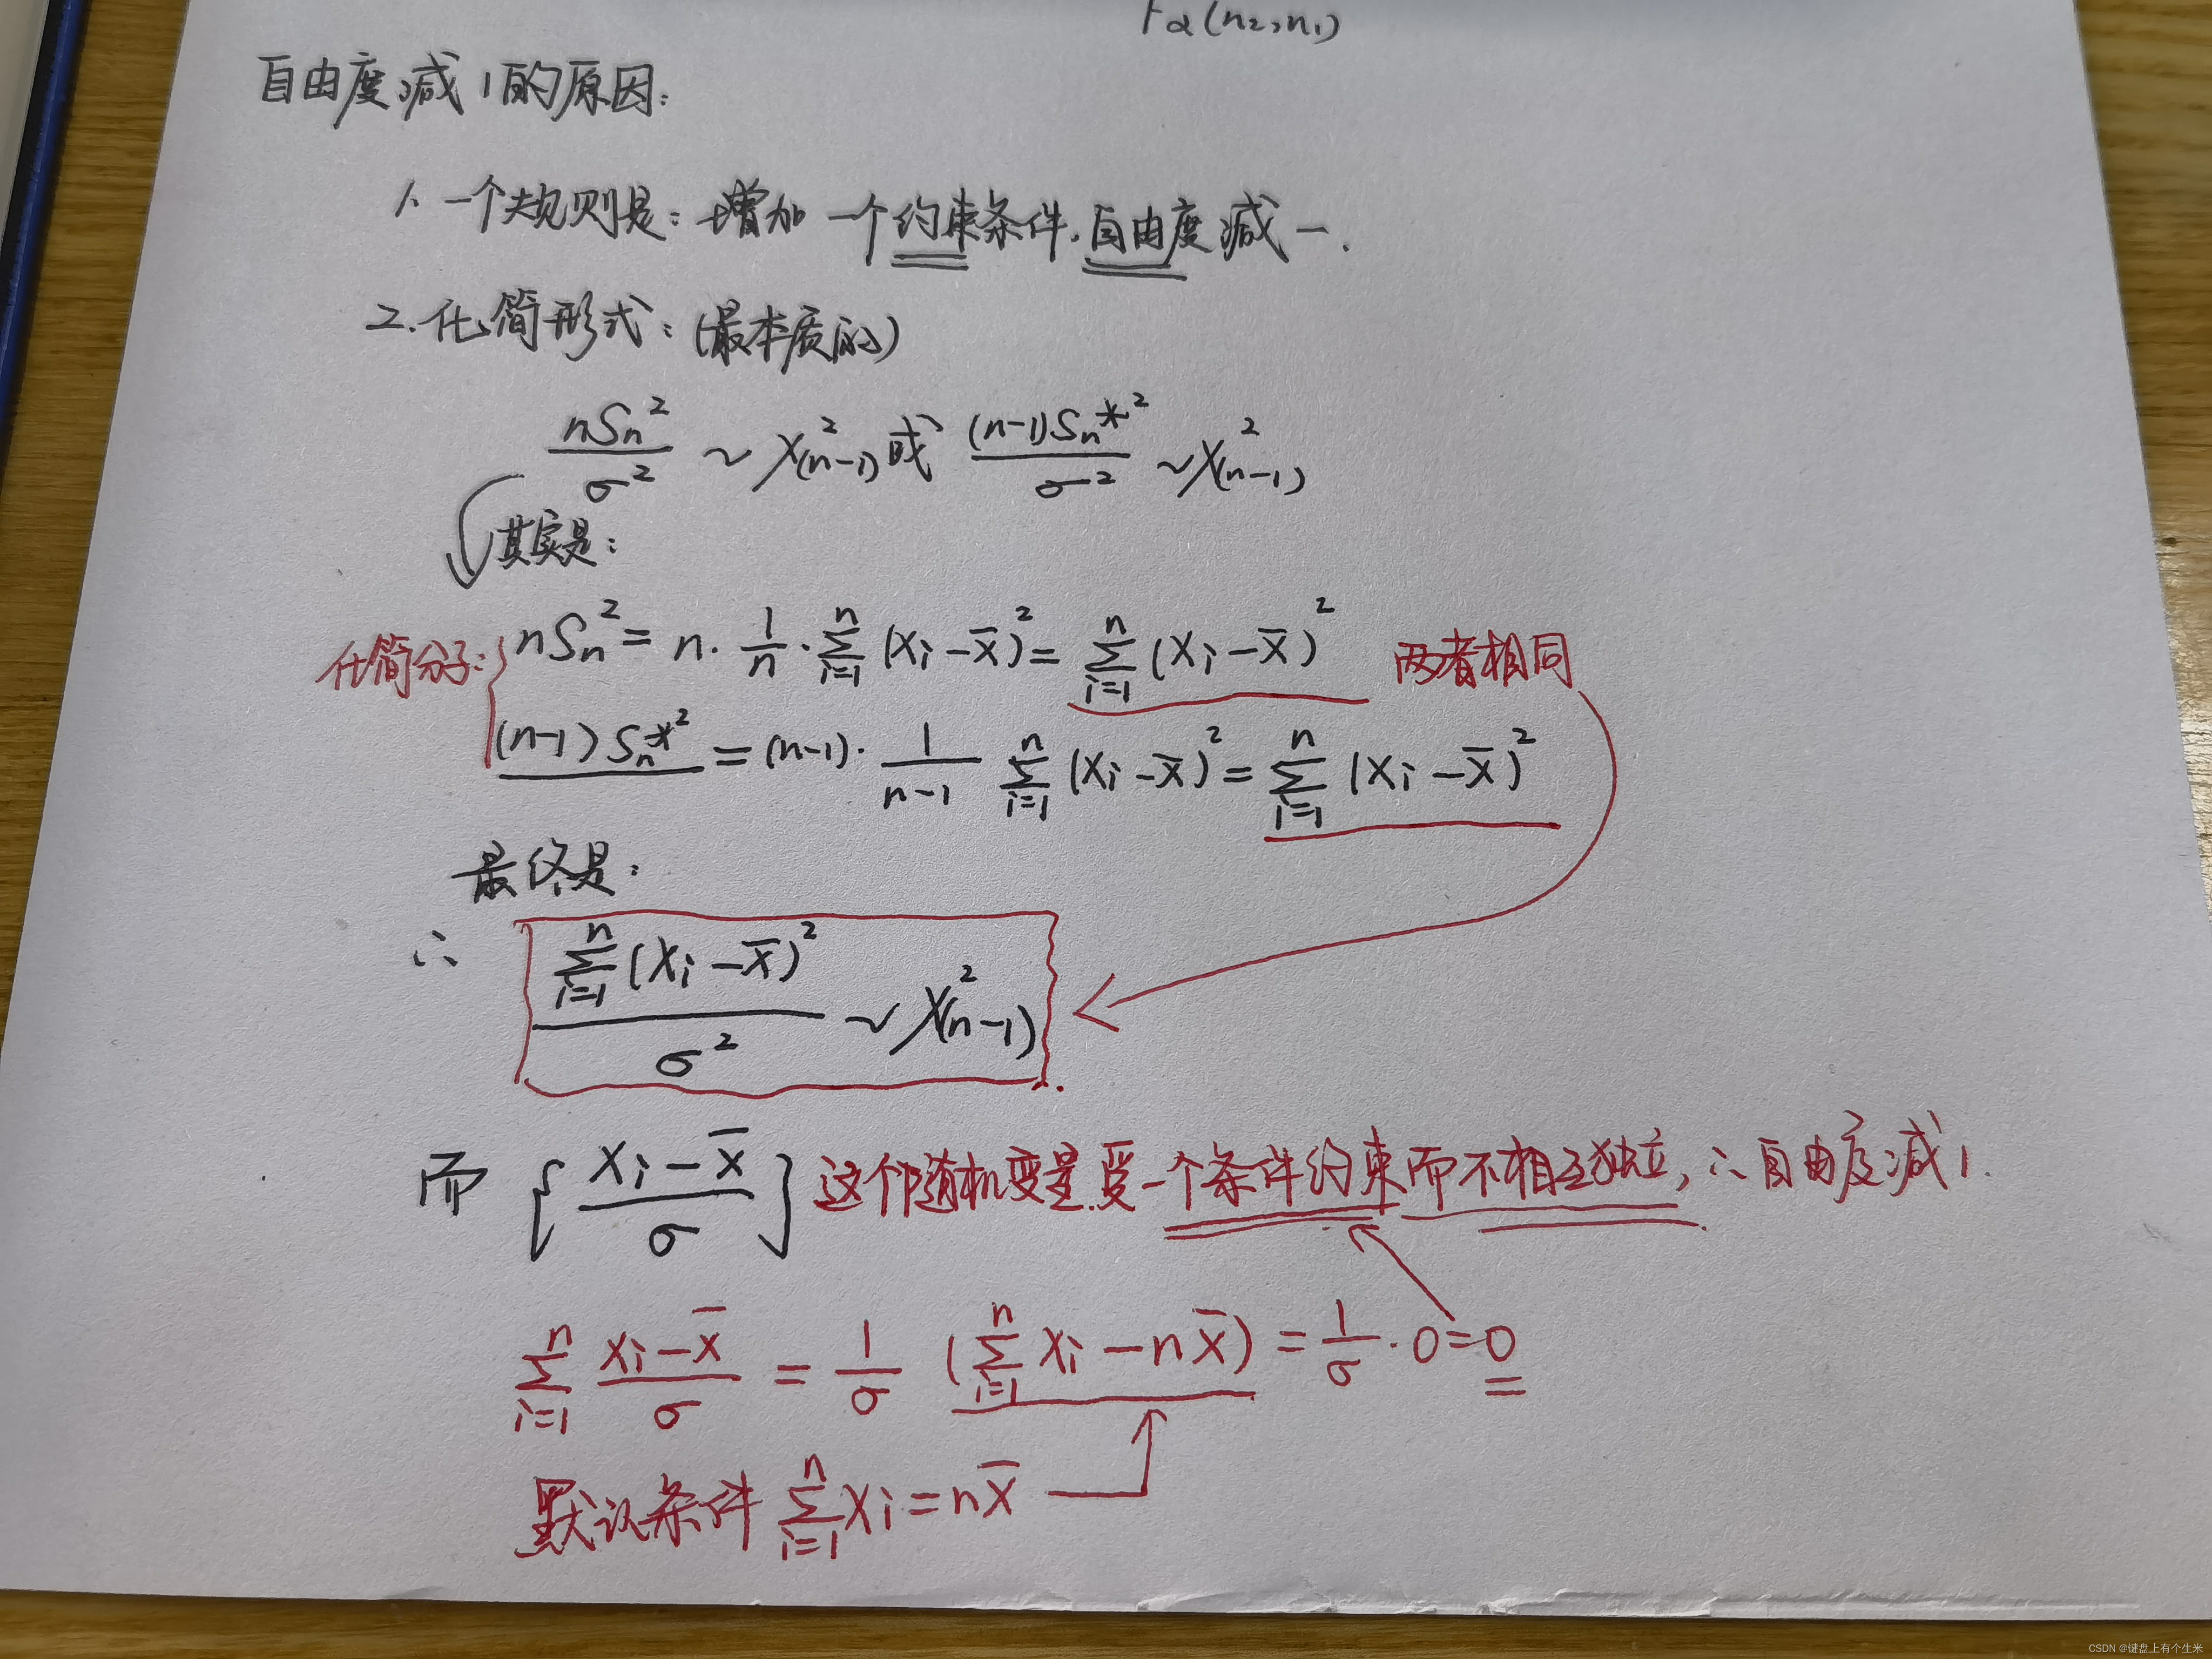 Fα(n₂,n₁)
自由度减1的原因:
1. 一个规则是:增加一个约束条件,自由度减一.
2.化简形式:(最本质的)
nSn²/σ² ~ χ²(n-1) 或 (n-1)Sn*²/σ² ~ χ²(n-1)
其实是:
化简分子: nSn² = n·1/n·∑ⁿᵢ₌₁(Xi-X̄)² = ∑ⁿᵢ₌₁(Xi-X̄)² 两者相同
(n-1)Sn*² = (n-1)·1/(n-1) ∑ⁿᵢ₌₁(Xi-X̄)² = ∑ⁿᵢ₌₁(Xi-X̄)²
最终是:
∴ ∑ⁿᵢ₌₁(Xi-X̄)²/σ² ~ χ²(n-1)
而 {(Xi-X̄)/σ} 这个随机变量受一个条件约束而不相互独立, ∴自由度减1.
∑ⁿᵢ₌₁ (Xi-X̄)/σ = 1/σ (∑ⁿᵢ₌₁Xi-nX̄) = 1/σ·0=0
默认条件 ∑ⁿᵢ₌₁Xi=nX̄
CSDN @键盘上有个生米